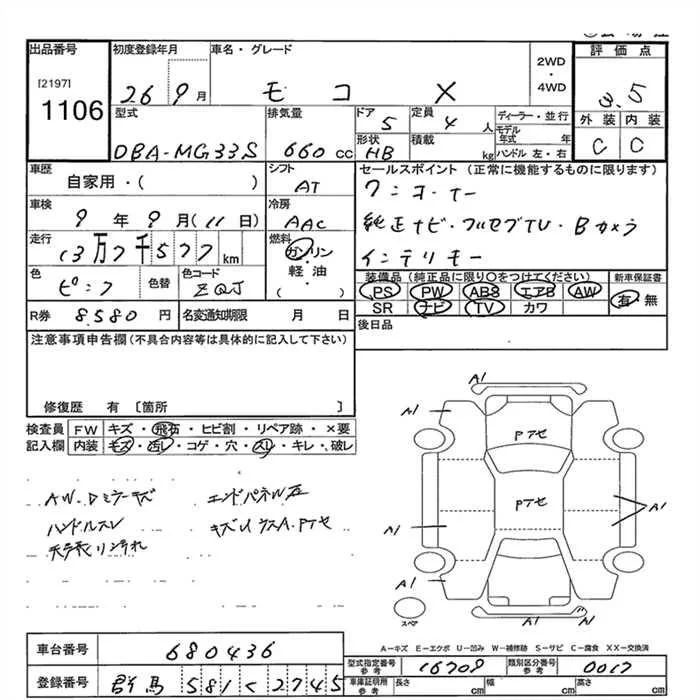 出品番号 初度登録年月 車名・グレード 評価点
[2197]
1106
26 9月 モコ X 2WD・4WD 3.5
型式 排気量 ドア 5 定員 4人 ディーラー・並行 外装 内装
DBA-MG33S 660cc 形状 HB 積載 kg モデル年式 年 ハンドル 左・右 C C
車歴 シフト セールスポイント(正常に機能するものに限ります)
自家用・( ) AT ワンオーナー
車検 冷房
9年9月(11日) AAC 純正ナビ・フルセグTV・Bカメラ
走行 燃料
13万7千577km ガソリン・軽油・( ) インテリキー
色 色替 色コード 装備品(純正品に限り○をつけてください) 新車保証書
ピンク ZQJ PS PW ABS エアB AW 有 無
SR ナビ TV カワ
R券 8580円 名変通知期限 月 日 後日品
注意事項申告欄(不具合内容等は具体的に記入して下さい)
修復歴 有 〔箇所 〕
検査員 FW キズ・飛石・ヒビ割・リペア跡・×要
記入欄 内装 キズ・汚レ・コゲ・穴・スレ・キレ・破レ
AW.Dミラーキズ エンドパネル左
ハンドルスレ
A1
A1
Pアセ
Pアセ
A1
A1
A1
A1
スペア
A-キズ E-エクボ U-凹み W-補修跡 S-サビ C-腐食 XX-交換済
車台番号 680436
登録番号 群馬 581く2745
型式指定番号 参考 16708 類別区分番号 参考 0017
車庫証明用 参考 長さ cm 幅 cm 高さ cm